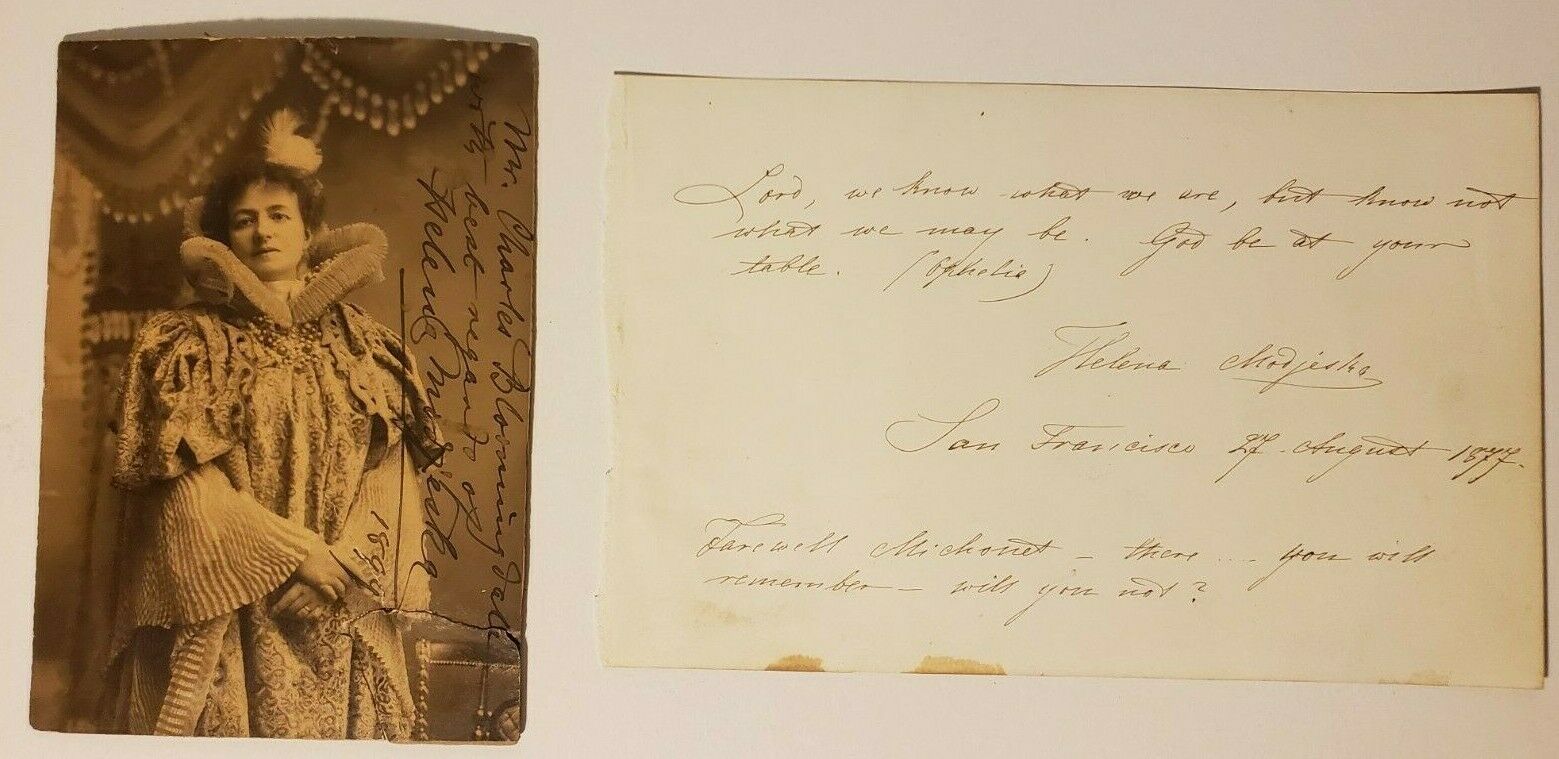 Mr. Charles Bloomingdale
with best regards of
Helena Modjeska
1899
Lord, we know what we are, but know not
what we may be. God be at your
table. (Ophelie)
Helena Modjeska
San Francisco 27 August 1877.
Farewell Michonet – there .... you will
remember – will you not?